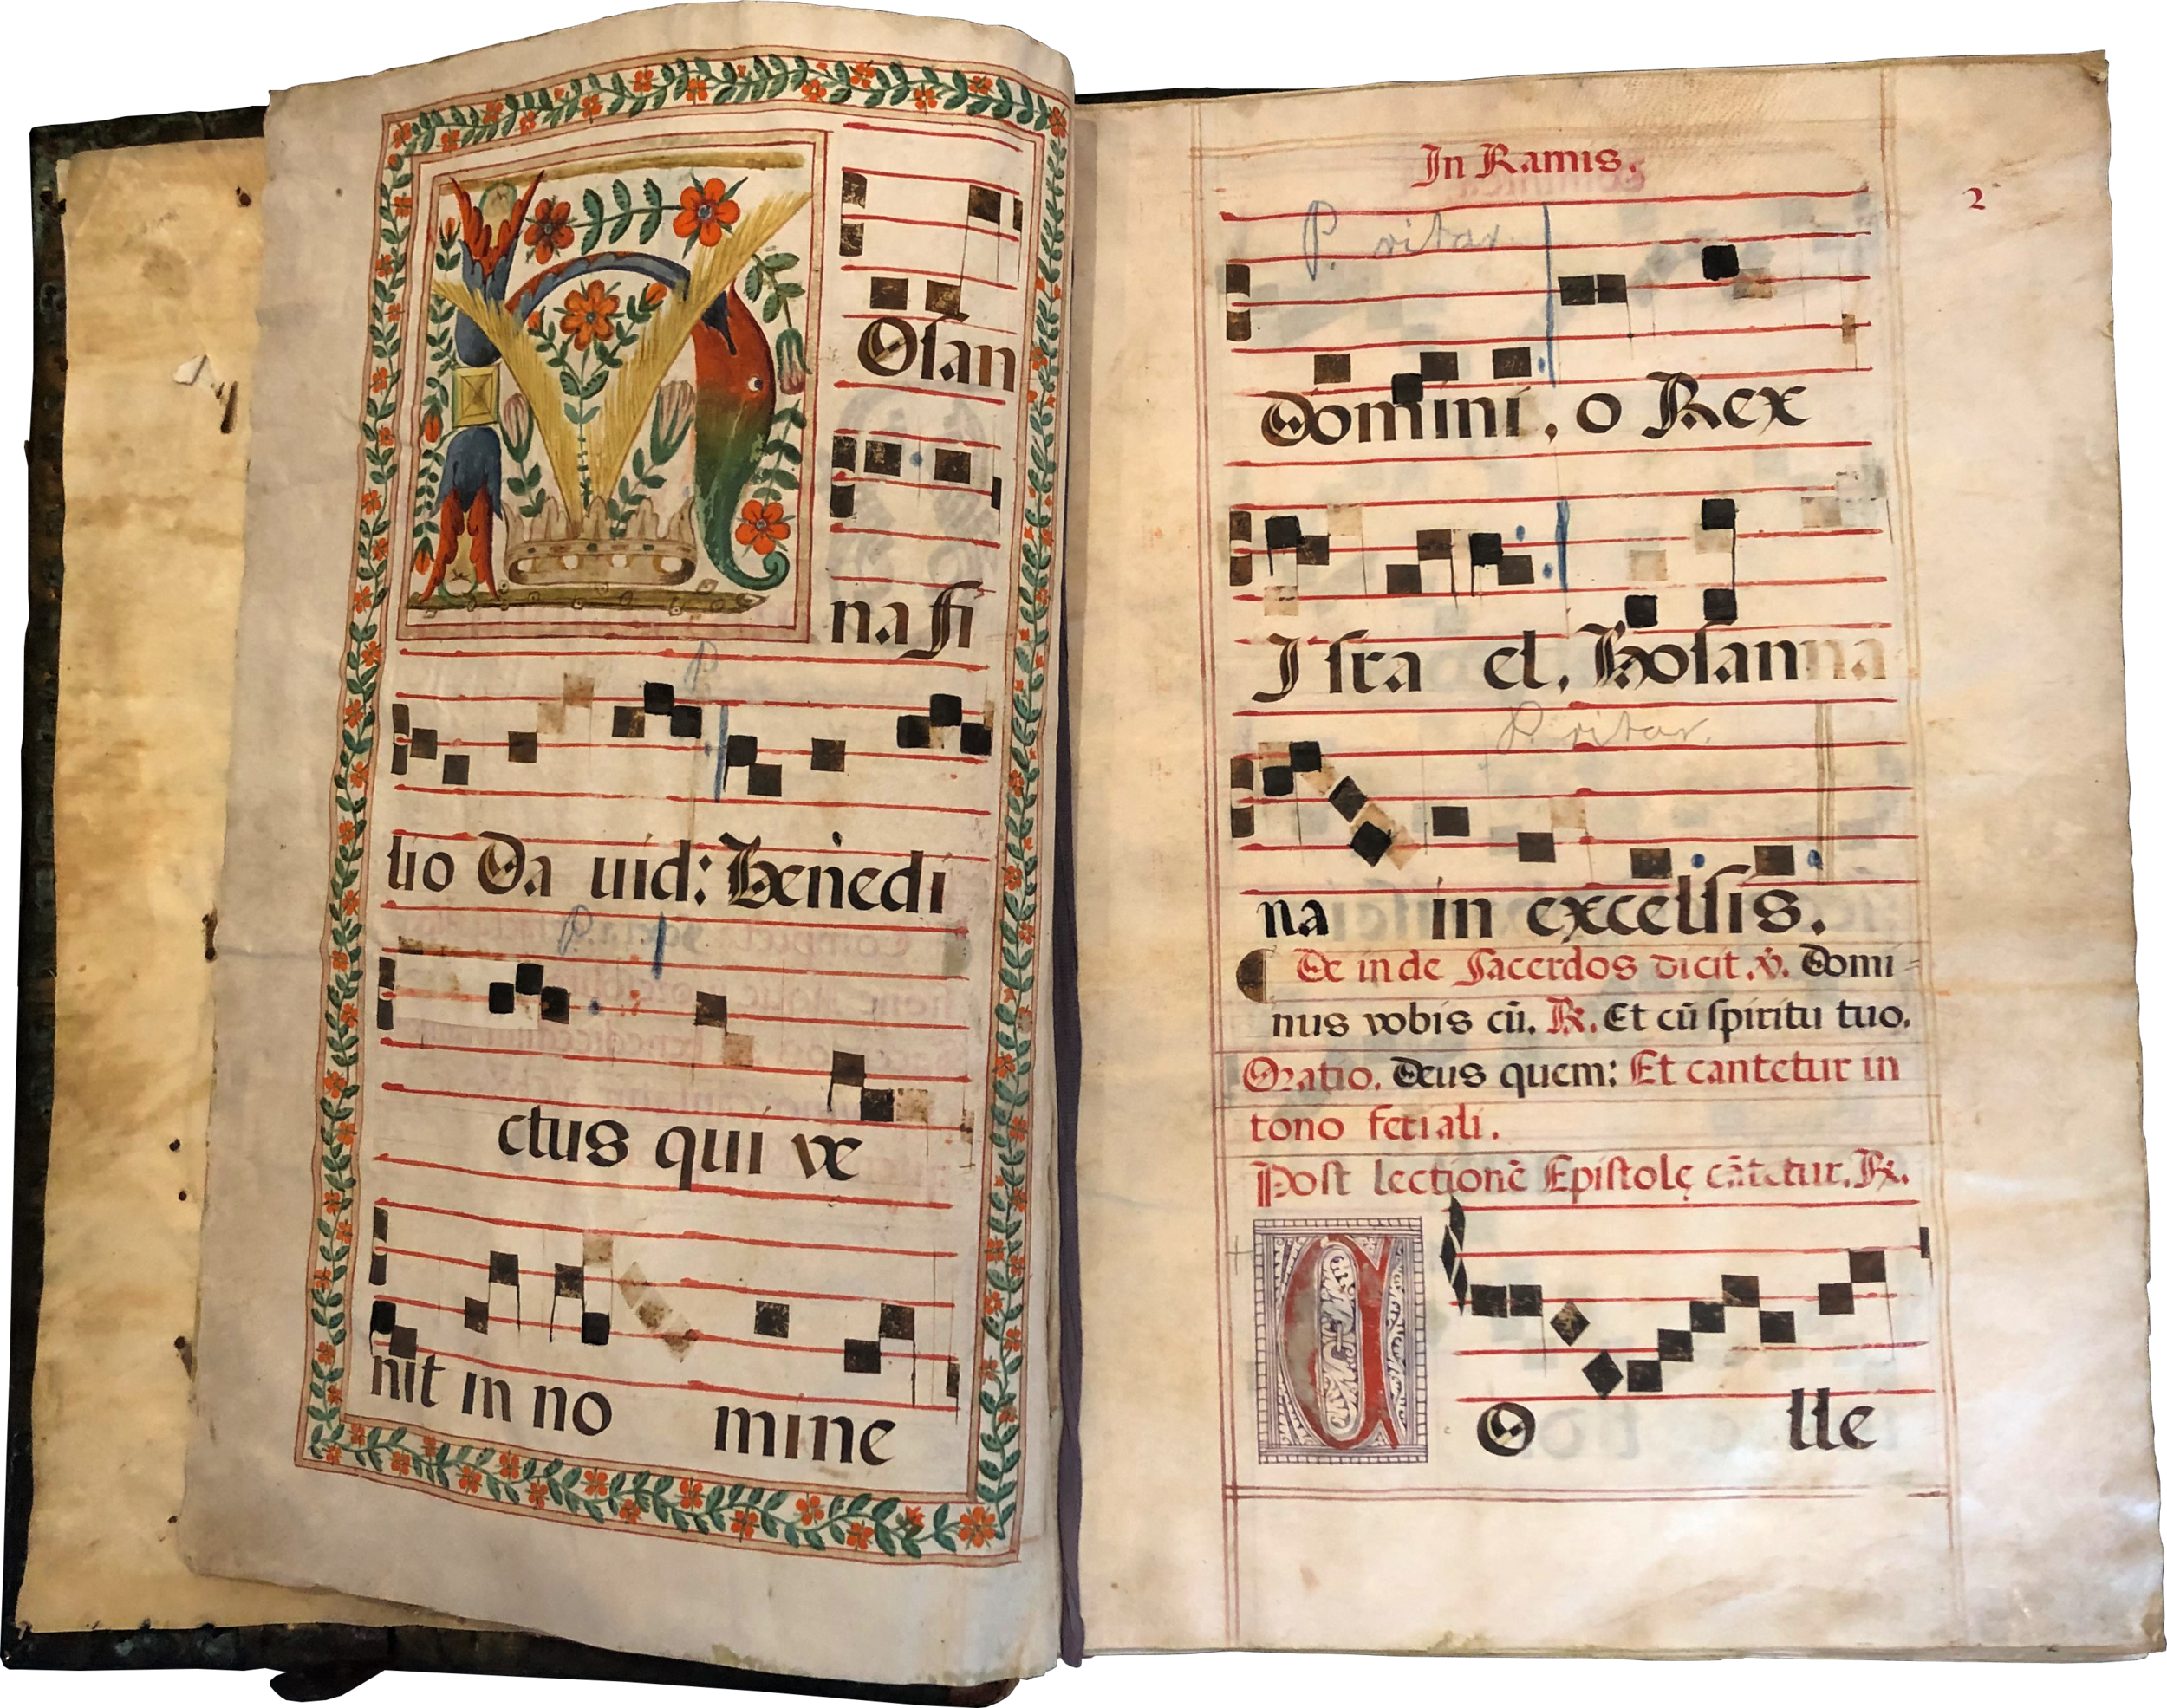 HOſan
na fi
lio Da uid: Benedi
P.
ctus qui ve
nit in no mine
In Ramis.
2
P. ritar.
Domini, o Rex
Iſra el, Hoſanna
P. ritar.
na in excelſis.
De inde Sacerdos dicit .v̄. Domi=
nus vobis cū. ℟. Et cū ſpiritu tuo.
Oratio. Deus quem: Et cantetur in
tono feriali.
Poſt lectionē Epiſtolę cātatur. ℟.
CO lle